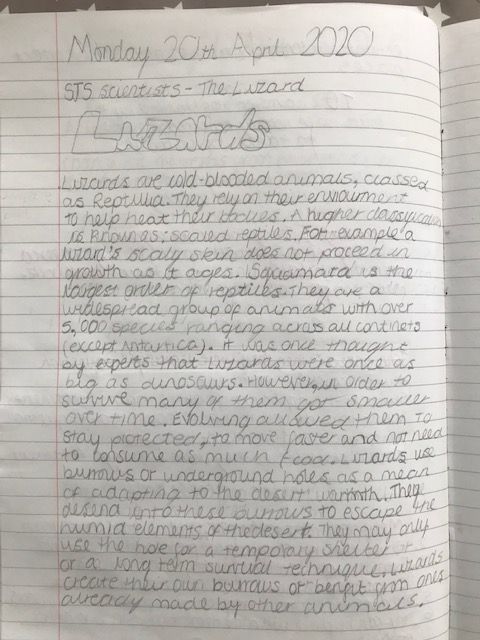 Monday 20th April 2020
STS scientists - The Lizard
Lizards
Lizards are cold-blooded animals, classed
as Reptilia. They rely on their enviroument
to help heat their bodies. A higher
is : scaled reptiles. For example a
lizard's scaly skin does not proceed in
growth as it ages. Squamara is the
largest order of reptiles. They are a
widespread group of animals with over
5,000 species ranging across all continets
(except Antartica). It was once thought
by experts that lizards were once as
big as dinosaurs. However, in order to
survive many of them got smaller
over time. Evolving allowed them to
stay protected, to move faster and not need
to consume as much food. Lizards use
burrows or underground holes as a mean
of adapting to the desert warmth. They
desend into these burrows to escape the
humid elements of the desert. They may only
use the hole for a temporary shelter
or a long term survival technique. Lizards
create their own burrows or benifit from ones
already made by other animals.